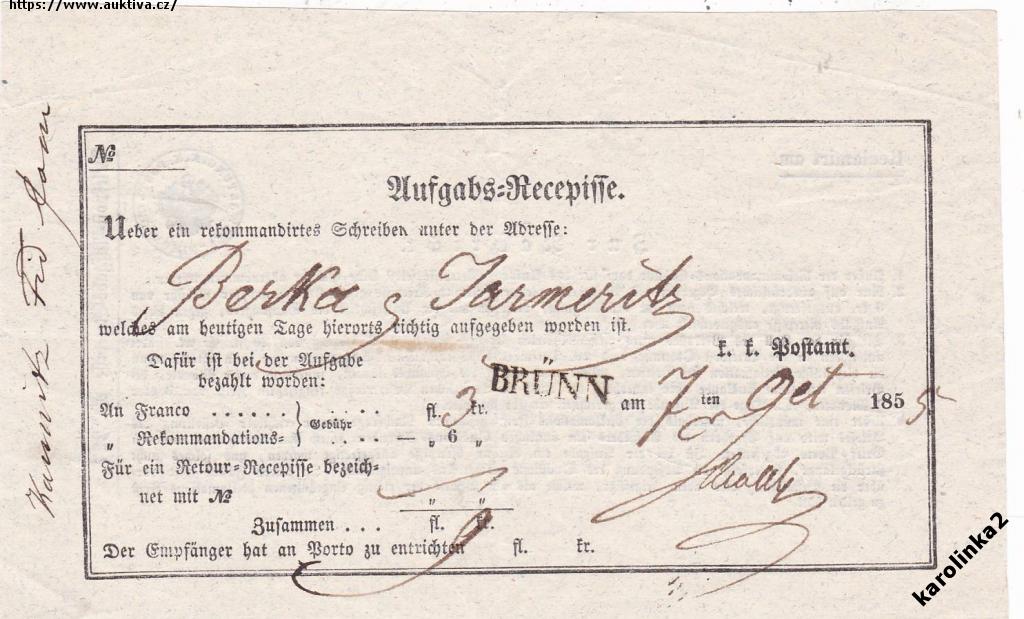 https://www.auktiva.cz/
№
Aufgabs-Recepisse.
Ueber ein rekommandirtes Schreiben unter der Adresse:
Berka Jarmeritz
welches am heutigen Tage hierorts richtig aufgegeben worden ist.
k. k. Postamt.
Dafür ist bei der Aufgabe
bezahlt worden:
BRÜNN am 7 ten Oct 1855
An Franco . . . . . . Gebühr . . . . fl. 3 kr.
„ Rekommandations- . . . . — „ 6 „
Für ein Retour-Recepisse bezeich-
net mit № „ „
Zusammen . . . fl. 9 kr.
Der Empfänger hat an Porto zu entrichten fl. kr.
Kaunitz
karolinka2